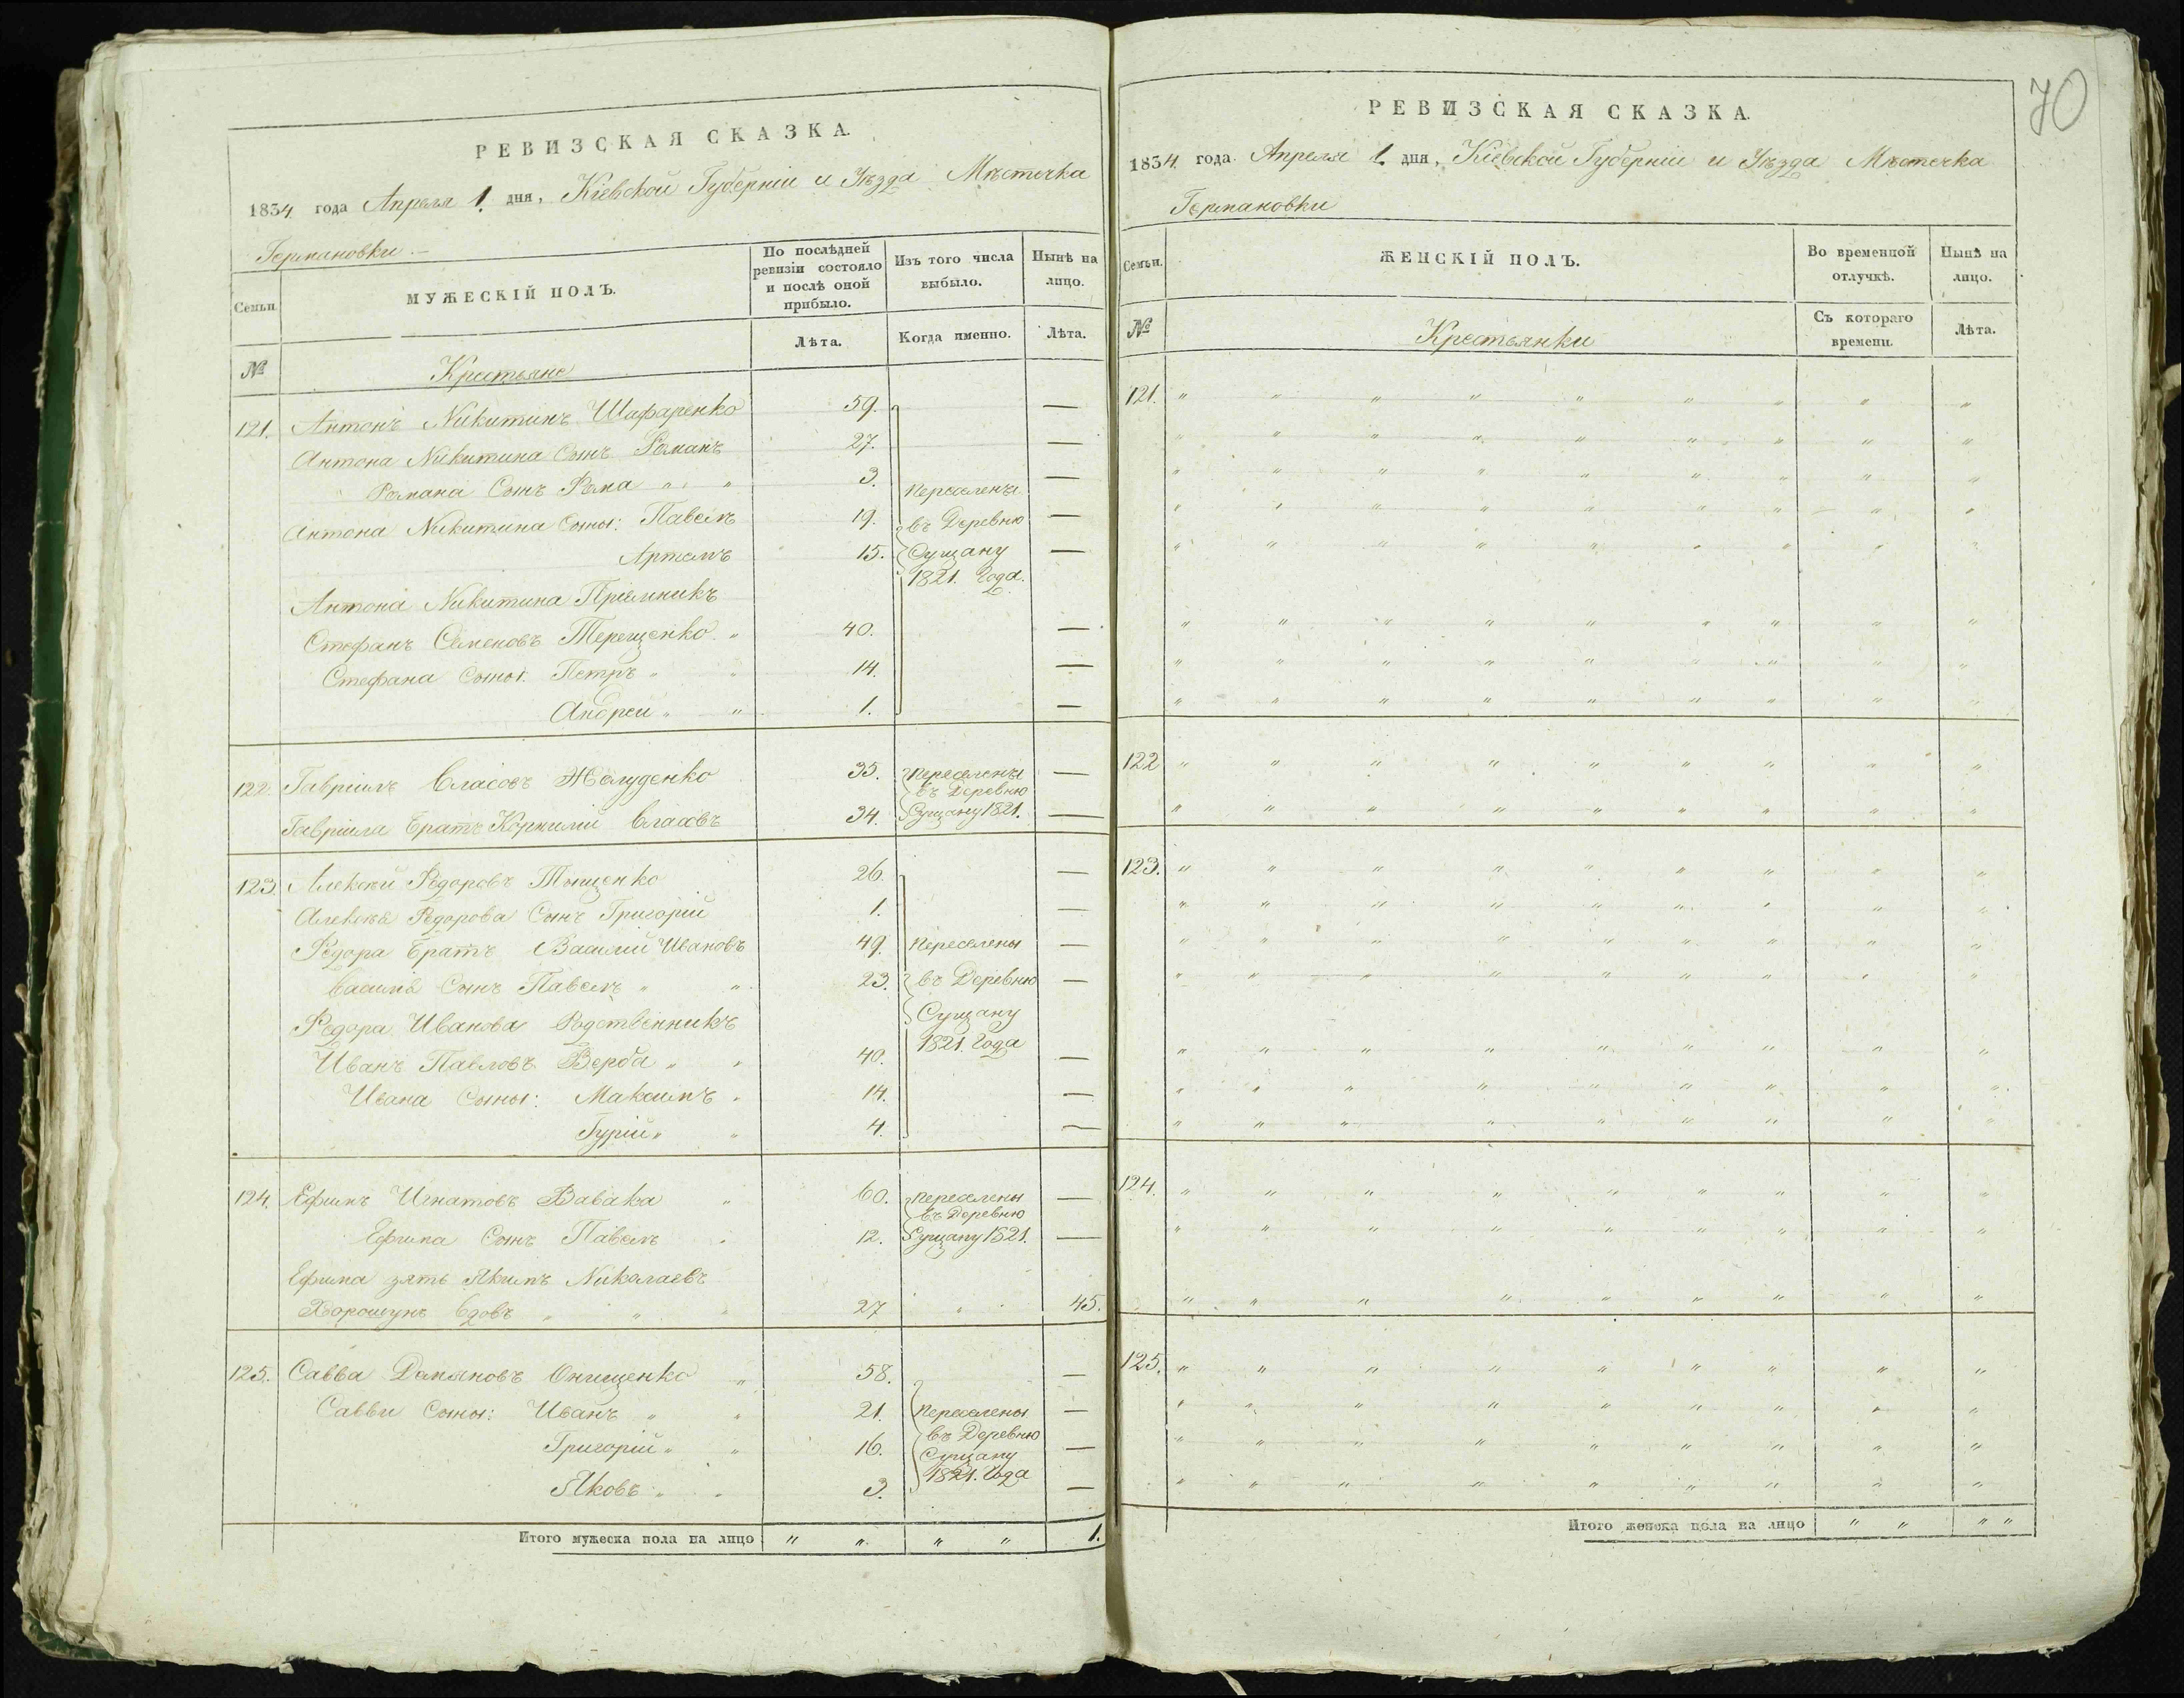 РЕВИЗСКАЯ СКАЗКА.
1834 года Апреля 1. дня, Кіевской Губерніи и Уѣзда Мѣстечка
Германовки
Семьи.
МУЖЕСКІЙ ПОЛЪ.
По послѣдней ревизіи состояло и послѣ оной прибыло.
Изъ того числа выбыло.
Нынѣ на лицо.
№
Крестьяне
Лѣта.
Когда именно.
Лѣта.
121. Антонъ Никитинъ Шафаренко 59. —
Антона Никитина Сынъ Романъ 27. —
Романа Сынъ Фома " " 3. Переселены —
Антона Никитина Сыны: Павелъ 19. въ Деревню —
Артемъ 15. Сущану —
1821. Года.
Антона Никитина Пріемникъ
Стефанъ Семеновъ Терещенко " 40. —
Стефана Сыны: Петръ " " 14. —
Андрей " " 1. —
122. Гавріилъ Власовъ Жолуденко 35. Переселены —
въ Деревню
Гавріила Братъ Корнилій Власовъ 34. Сущану 1821. —
123. Алексѣй Федоровъ Тыщенко 26. —
Алексѣя Федорова Сынъ Григорій 1. —
Федора Братъ Василій Ивановъ 49. Переселены —
Василія Сынъ Павелъ " " 23. въ Деревню —
Федора Иванова Родственникъ Сущану
Иванъ Павловъ Верба " " 40. 1821. Года —
Ивана Сыны: Максимъ " 14. —
Гурій " " 4. —
124. Ефимъ Игнатовъ Вавака " 60. Переселены —
въ Деревню
Ефима Сынъ Павелъ " 12. Сущану 1821. —
Ефима зять Якимъ Николаевъ
Хорошунъ вдовъ " " " 27 " 45.
125. Савва Демяновъ Онищенко " 58. —
Саввы Сыны: Иванъ " " 21. Переселены —
въ Деревню
Григорій " " 16. Сущану —
Яковъ " " 3. 1821. Года —
Итого мужеска пола на лицо " " " " 1.
70
РЕВИЗСКАЯ СКАЗКА.
1834 года Апреля 1. дня, Кіевской Губерніи и Уѣзда Мѣстечка
Германовки
Семьи.
ЖЕНСКІЙ ПОЛЪ.
Во временной отлучкѣ.
Нынѣ на лицо.
№
Крестьянки
Съ котораго времени.
Лѣта.
121. " " " " " " " " "
" " " " " " " "
" " " " " " " " "
" " " " " " " " "
" " " " " " " " "
" " " " " " " " "
" " " " " " " " "
" " " " " " " " "
122 " " " " " " " " "
" " " " " " " " "
123. " " " " " " " " "
" " " " " " " " "
" " " " " " " " "
" " " " " " " " "
" " " " " " " " "
" " " " " " " " "
" " " " " " " " "
124. " " " " " " " " "
" " " " " " " " "
" " " " " " " " "
125. " " " " " " " " "
" " " " " " " " "
" " " " " " " " "
" " " " " " " " "
Итого женска пола на лицо " " " "